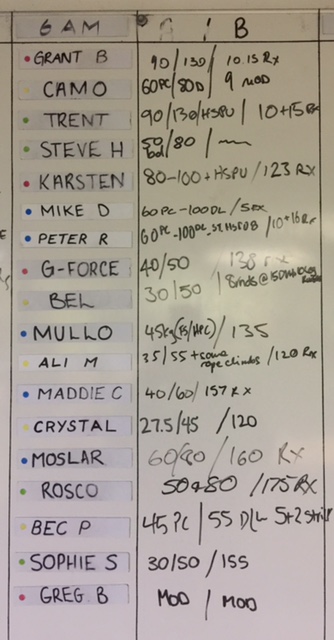 6 AM A / B
GRANT B 90/130/ 10.15 Rx
CAMO 60PC/80D/ 9 MOD
TRENT 90/130/HSPU / 10+15 Rx
STEVE H 50 /80 /
KARSTEN 80-100+HSPU/123 Rx
MIKE D 60PC-100DL/
PETER R 60PC-100DL /10+16 Rx
G-FORCE 40/50 / 138 Rx
BEL 30/50 /
MULLO 45kg(FS/HPC)/ 135
ALI M 35/55+some rope climbs /120 Rx
MADDIE C 40/60/ 157 Rx
CRYSTAL 27.5/45 /120
MOSLAR 60/80 /160 Rx
ROSCO 50+80 /175 Rx
BEC P 45 PC / 55 DL
SOPHIE S 30/50 / 155
GREG B MOD / MOD